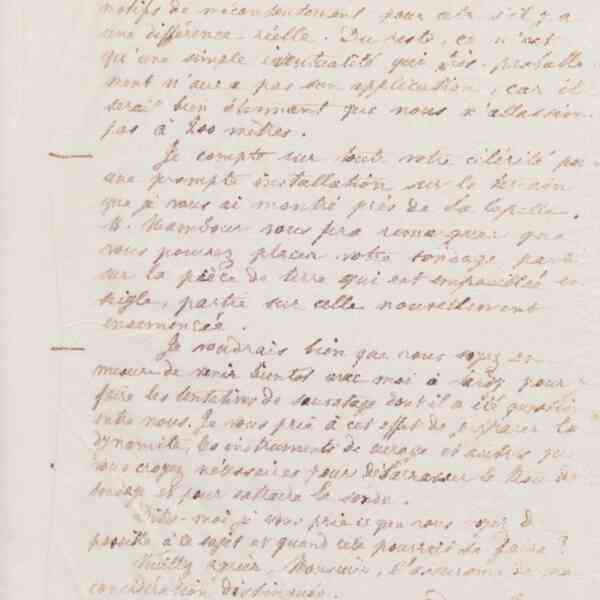 motifs de mécontentement pour cela s'il y a
une différence réelle. Du reste, ce n'est
qu'une simple éventualité qui très-probable
ment n'aura pas son application, car il
serait bien étonnant que nous n'allassions
pas à 200 mètres.
Je compte sur toute votre célérité pour
une prompte installation sur le terrain
que je vous ai montré près de la Capelle.
M. vous fera remarquer que
vous pouvez placer votre sondage partie
sur la pièce de terre qui est en
seigle, partie sur celle nouvellement
ensemencée.
Je voudrais bien que vous soyez en
mesure de venir bientôt avec moi à pour
faire les tentatives de sauvetage dont il a été question
entre nous. Je vous prie à cet effet de préparer la
dynamite, les instruments de curage et autres que
vous croyez nécessaires pour débarrasser le trou de
sondage et pour extraire la sonde.
Dites-moi je vous prie ce que vous
à ce sujet et quand cela pourrait se faire ?
Veuillez agréer, Monsieur, l'assurance de ma
considération distinguée.